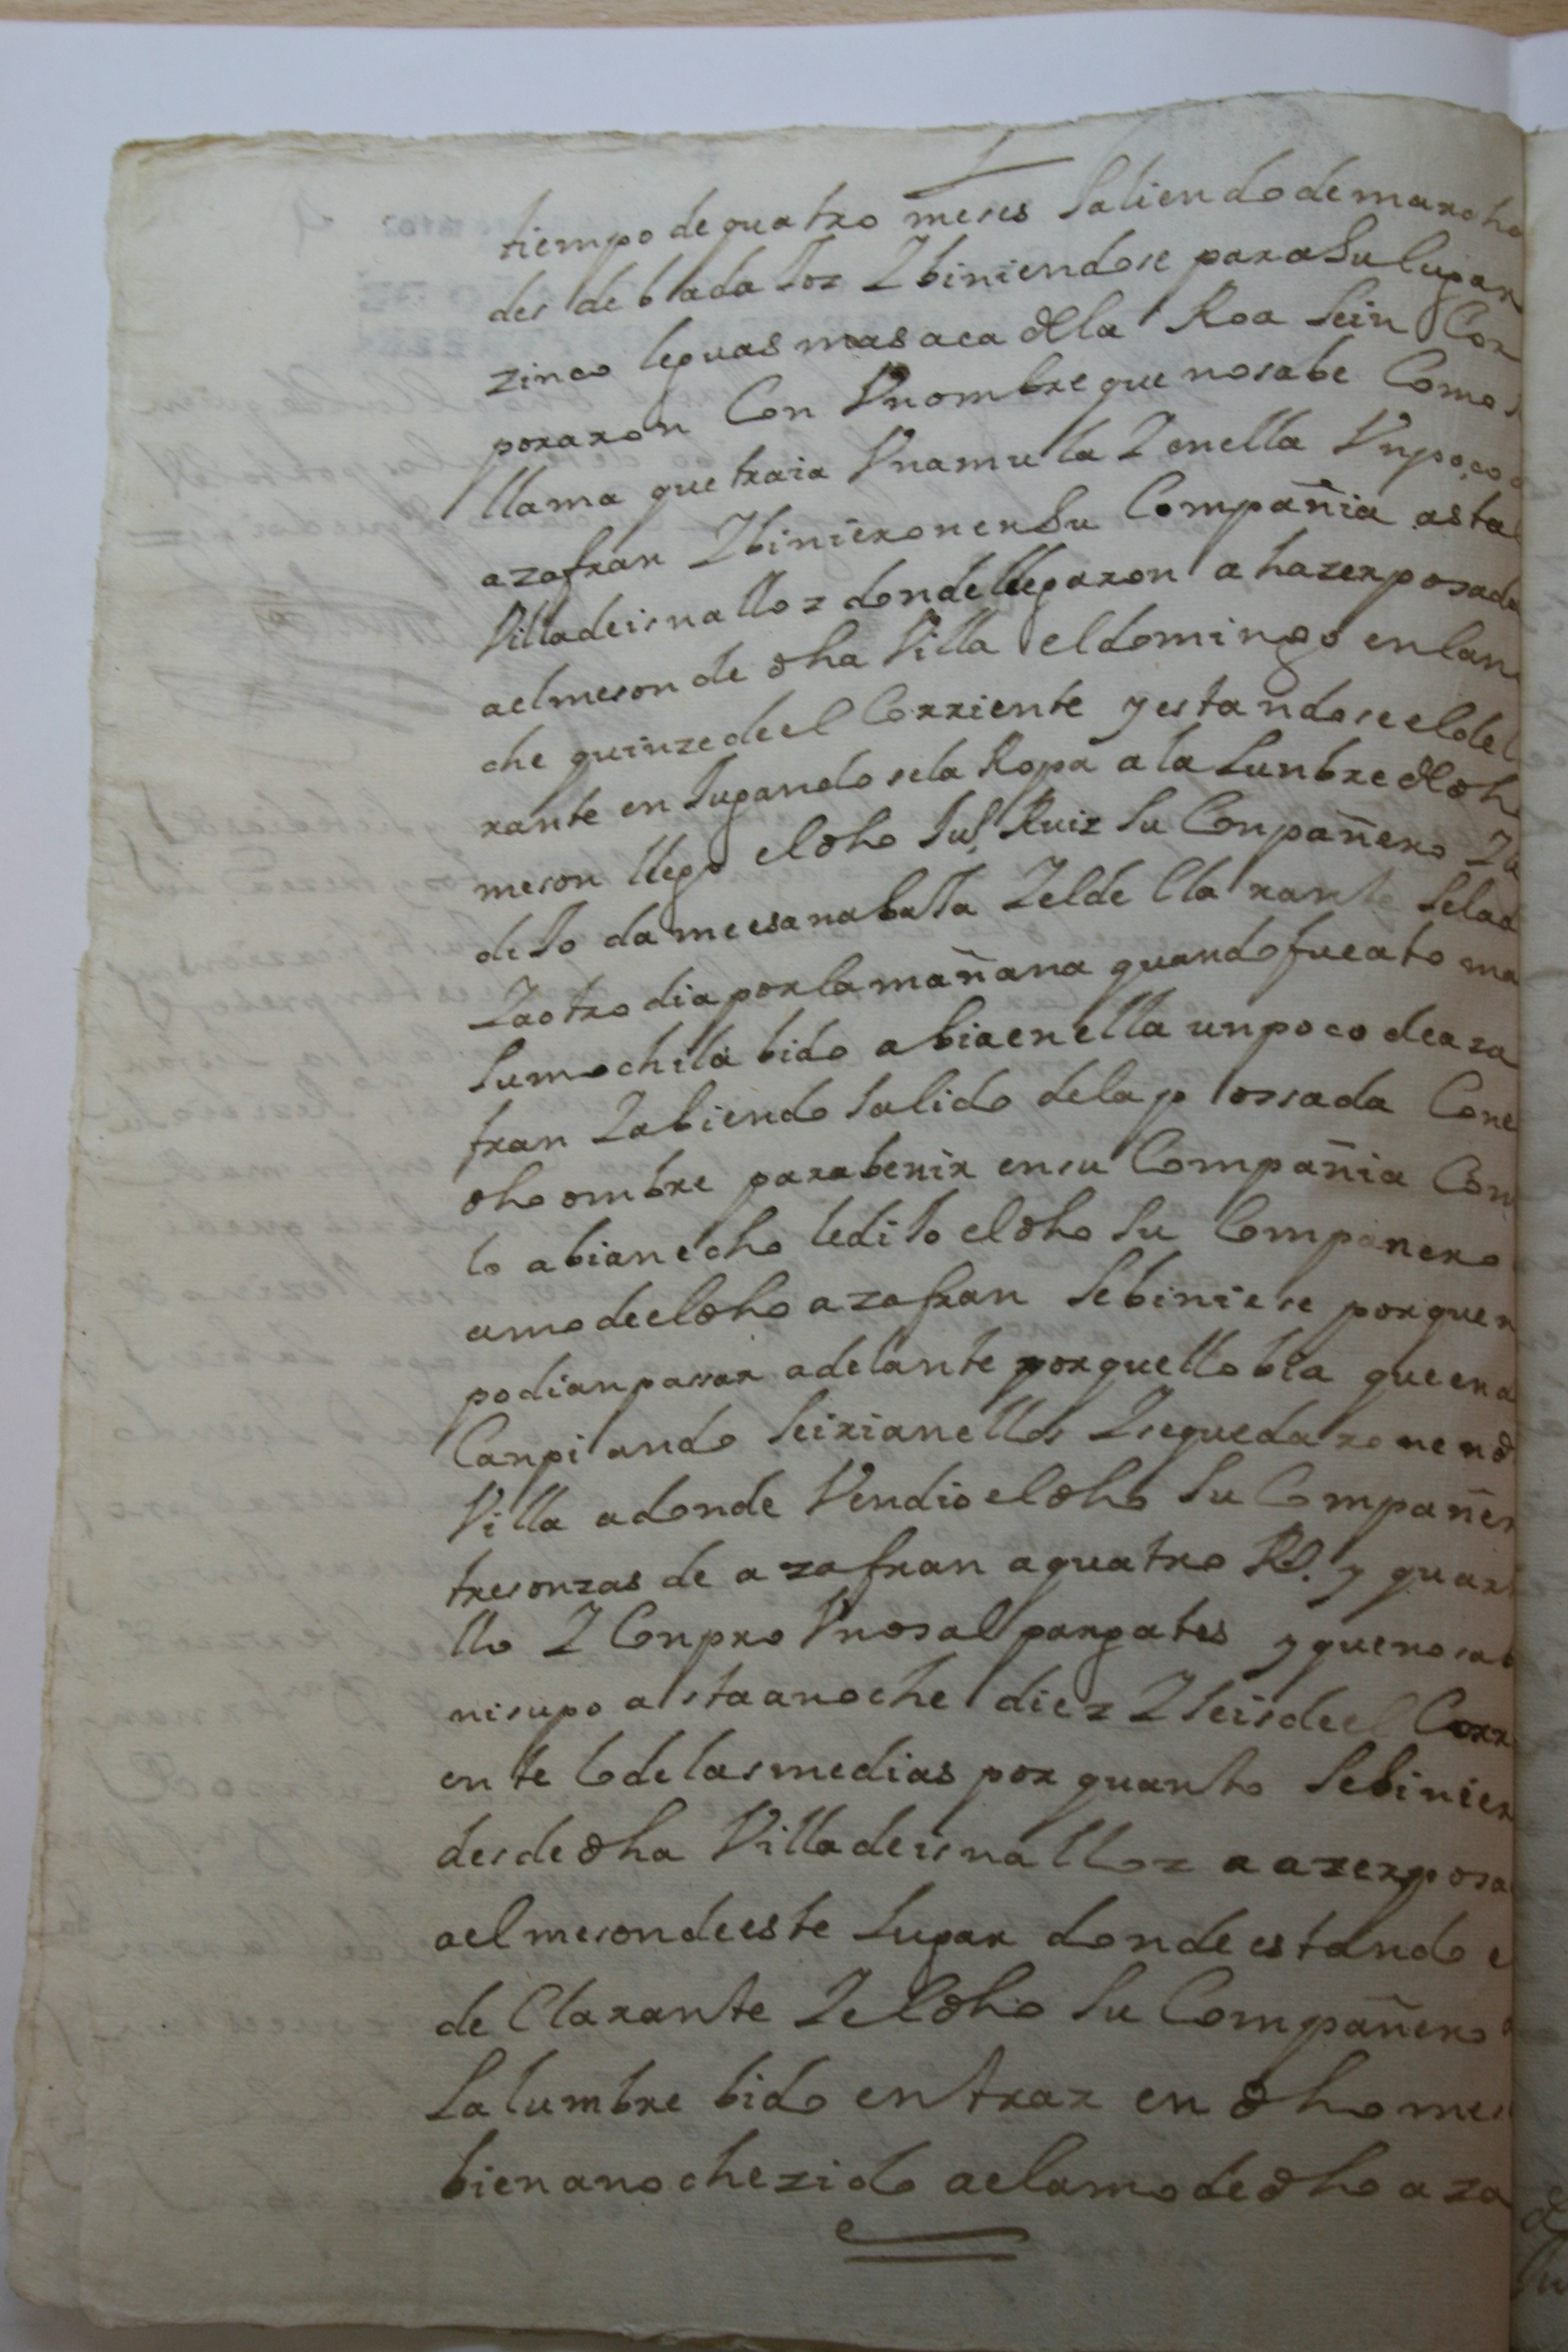 tiempo de quatro meses saliendo de marcha
desde badaJoz Y biniendose para su lugar
zinco leguas mas aca dela Roa se in Cor
poraron Con Vn ombre que no sabe Como s
llama que traia Vna mula Y en ella Vn poco
azafran Y binieron en su Compañia asta
Villa de isnalloz donde llegaron a hazer posada
a el meson de dha Villa el domingo en la no
che quinze de el Corriente y estandose el de
rante en Jugandose la Ropa a la lunbre de dh
meson llego el dho Ju.l Ruiz su Conpañero Y
deJo dame esa nabaJa Y el de Clarante se la d
Y a otro dia por la mañana quando fue a toma
su mochila bido abia en ella un poco de aza
fran Y abiendo salido de la possada Con e
dho ombre para benir en su Compañia Com
lo abian echo le diJo el dho su Companero
amo de el dho azafran se biniese porque n
podian passar adelante porque llobia que en
Canpi ando se irian ellos Y se quedaron en d
Villa adonde Vendio el dho su Compañer
tres onzas de azafran a quatro Rs. y quart
llo Y Conpro Vnos alpargates y que no sab
ni supo asta anoche diez Y seis de el Corr
ente lo de las medias por quanto se binier
desde dha Villa de isnalloz a azer posa
a el meson de este lugar donde estando e
de Clarante Y el dho su Compañero
la lumbre bido entrar en dho mes
bien anochezido a el amo de dho aza